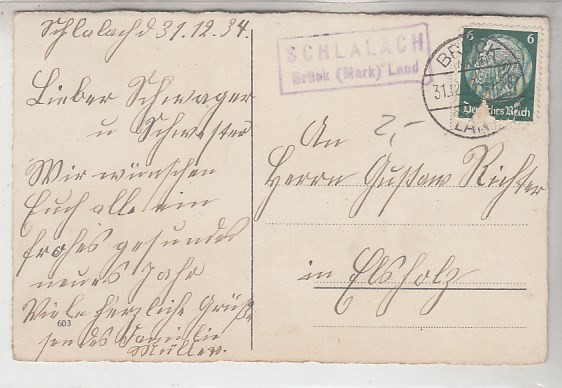 Schlalach d 31.12.34.
Lieber Schwager
u Schwester
Wir wünschen
Euch alle ein
frohes gesundes
neues Jahr
Viele herzliche Grüße
sendet Familie
Müller.
603
SCHLALACH
Brück (Mark) Land
BRÜCK
31.12
6 6
Deutsches Reich
2,-
An
Herrn Gustaw Richter
in Elsholz